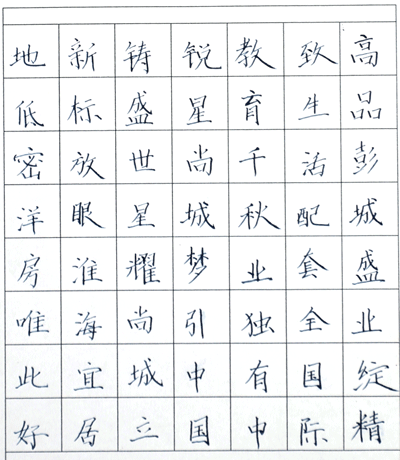 高品彭城盛业绽精
致生活配套全国际
教育千秋业独有中
锐星尚城梦引中国
铸盛世星耀尚城立
新标放眼淮海宜居
地低密洋房唯此好